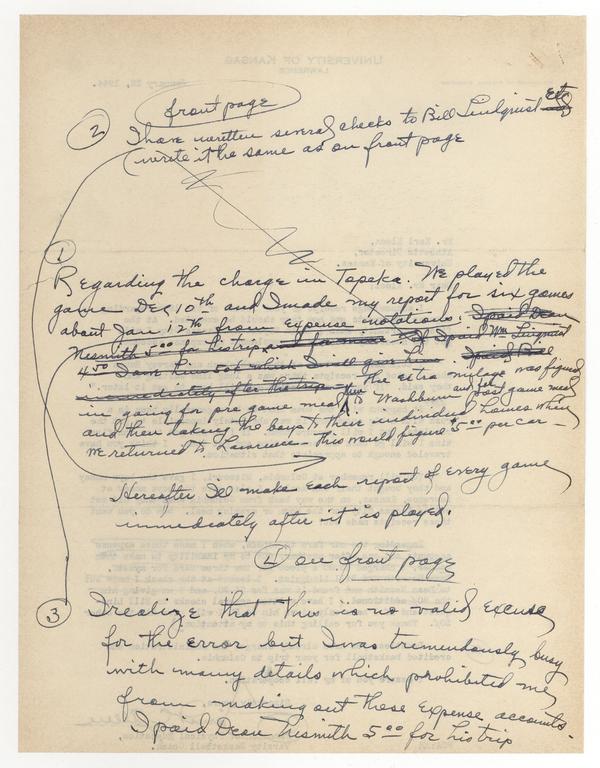 front page
2 I have written several checks to Bill Lindquist etc
(write it the same as on front page
1
Regarding the charge in Topeka. We played the
game Dec 10th and I made my report for six games
about Jan 12th from expense notations. I paid Dean
Nesmith 5.00 for his trip and for mine. If I paid Wm Linquist
4.50 I owe him 50¢ which I will give him. I paid Bill
immediately after the trip. The extra milage was figured
in going for pre game meal from Washburn and to post game meal
and then taking the boys to their individual homes when
we returned to Lawrence - This would figure 5.00 per car -
Hereafter I'll make each report of every game
immediately after it is played.
4 on front page
3 I realize that this is no valid excuse
for the error but I was tremendously busy
with many details which prohibited me
from making out these expense accounts.
I paid Dean Nesmith 5.00 for his trip